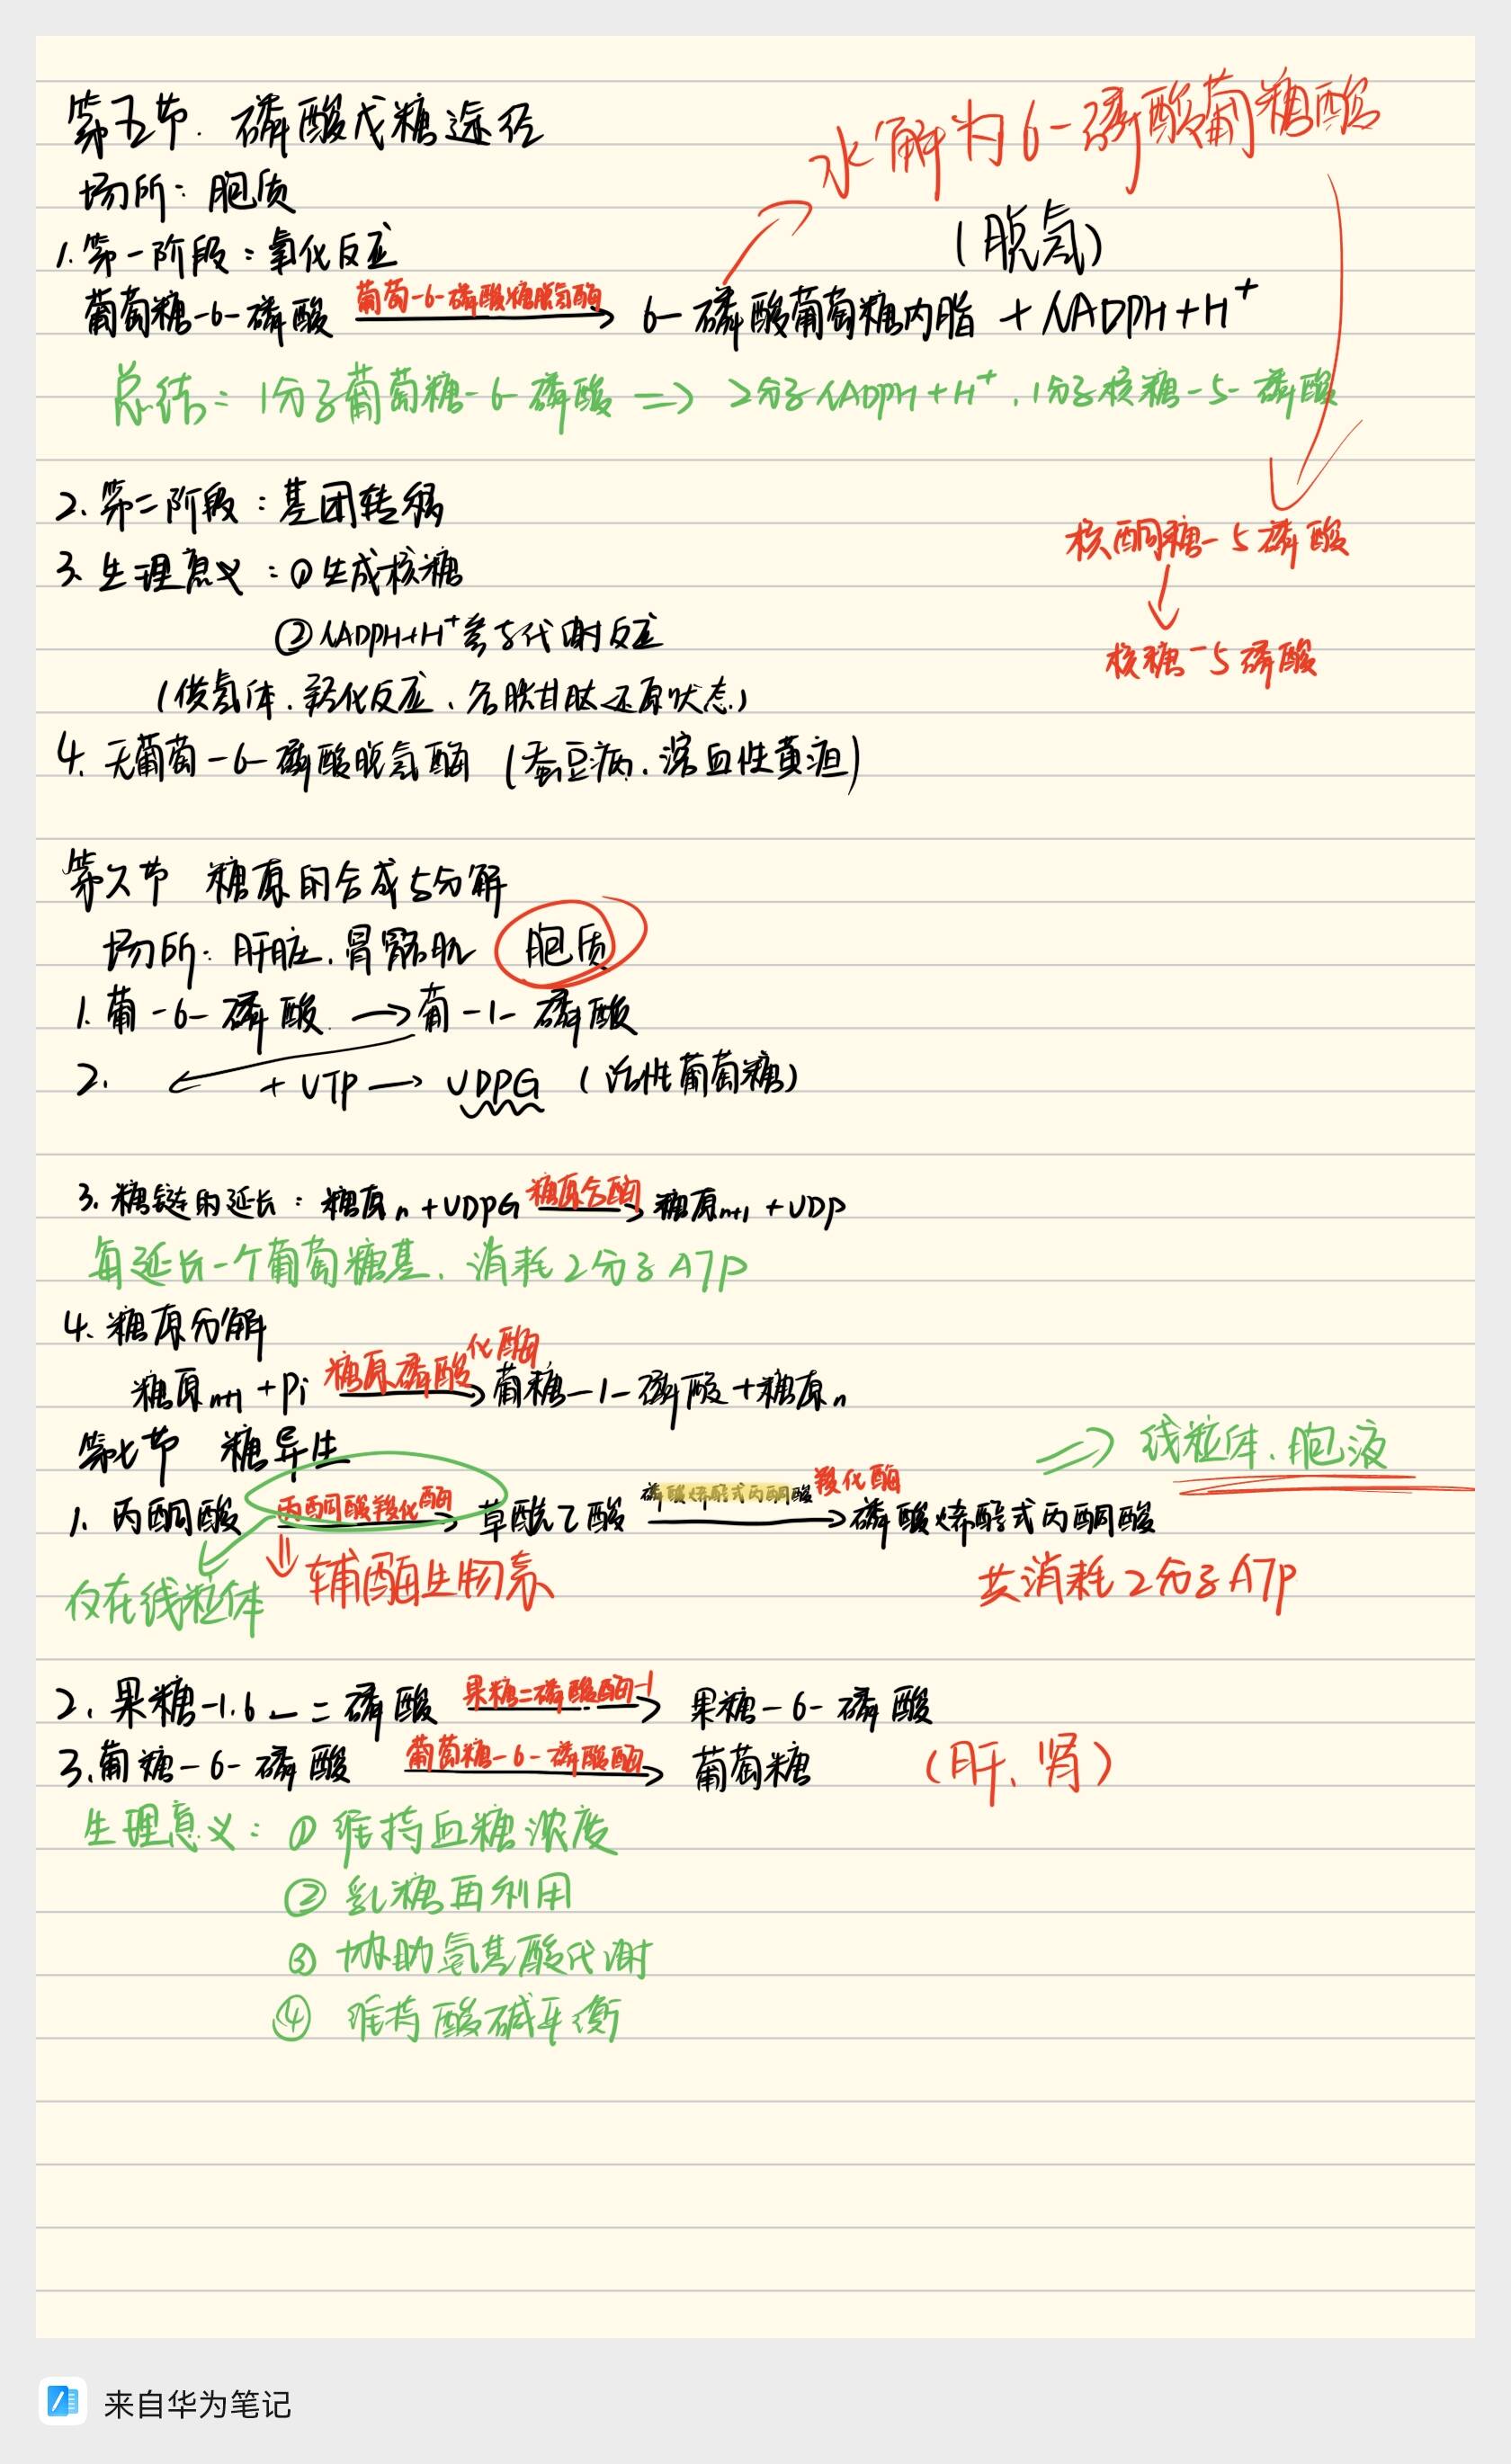 第五节. 磷酸戊糖途径
水解为6-磷酸葡糖酸
场所: 胞质
(脱氢)
1. 第一阶段: 氧化反应
葡萄-6-磷酸糖脱氢酶
葡萄糖-6-磷酸 → 6-磷酸葡萄糖内脂 + NADPH+H⁺
总结: 1分子葡萄糖-6-磷酸 => 2分子NADPH+H⁺, 1分子核糖-5-磷酸
2. 第二阶段: 基团转移
核酮糖-5磷酸
3. 生理意义: ①生成核糖
②NADPH+H⁺参与代谢反应
核糖-5磷酸
(供氢体、羟化反应、谷胱甘肽还原状态)
4. 无葡萄-6-磷酸脱氢酶 (蚕豆病、溶血性黄疸)
第六节 糖原的合成与分解
场所: 肝脏、骨骼肌 胞质
1. 葡-6-磷酸 → 葡-1-磷酸
2. + UTP → UDPG (活性葡萄糖)
糖原合酶
3. 糖链的延长: 糖原n + UDPG → 糖原n+1 + UDP
每延长一个葡萄糖基, 消耗2分子ATP
4. 糖原分解
糖原磷酸化酶
糖原n+1 + Pi → 葡糖-1-磷酸 + 糖原n
第七节 糖异生
=> 线粒体、胞液
丙酮酸羧化酶 磷酸烯醇式丙酮酸羧化酶
1. 丙酮酸 → 草酰乙酸 → 磷酸烯醇式丙酮酸
仅在线粒体 辅酶生物素 共消耗2分子ATP
果糖二磷酸酶-1
2. 果糖-1.6-二磷酸 → 果糖-6-磷酸
葡萄糖-6-磷酸酶
3. 葡糖-6-磷酸 → 葡萄糖 (肝、肾)
生理意义: ① 维持血糖浓度
② 乳糖再利用
③ 协助氨基酸代谢
④ 维持酸碱平衡
来自华为笔记